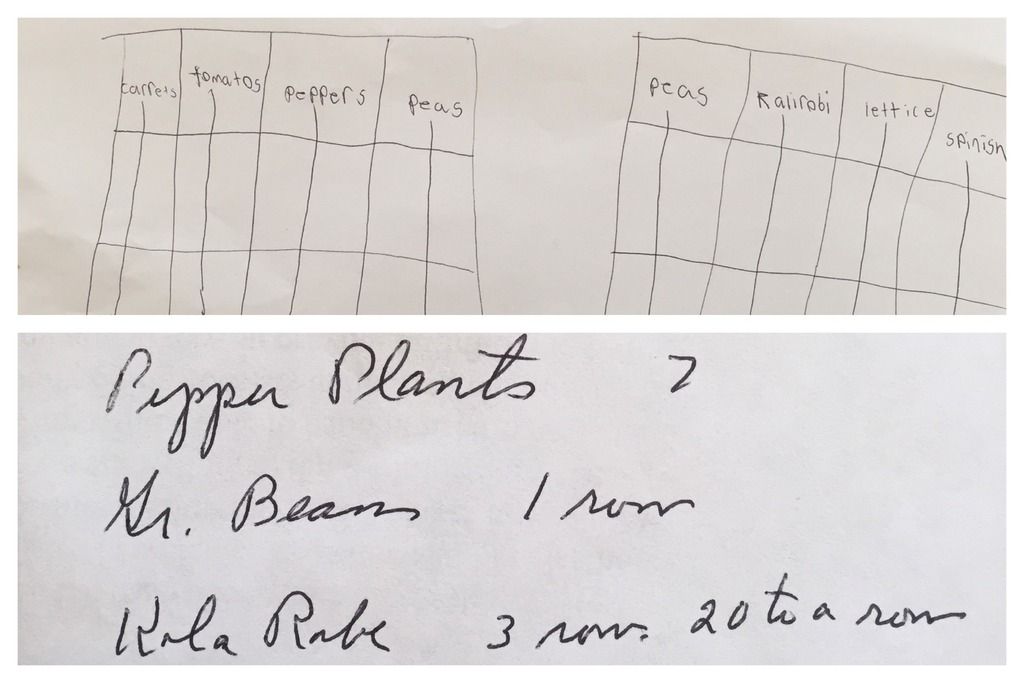 carrets tomatos peppers peas
peas Kalirobi lettice spinish
Pepper Plants 7
Gr. Beans 1 row
Kola Rabe 3 rows 20 to a row